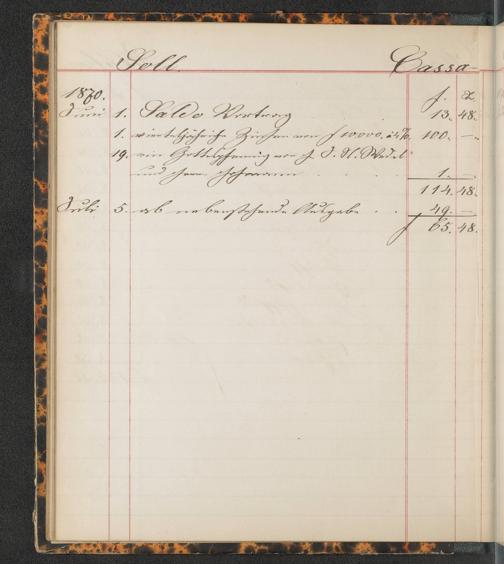 Soll. Cassa
1870. f. x.
Juni 1. Saldo Vortrag 13. 48.
1. vierteljährige Zinsen von f 10000. à 4%. 100. —
19. ein Gottespfennig von J. J. H.
und 1. —
114. 48.
Juli 5. ab nebenstehende Ausgabe . . 49. —
f 65. 48.